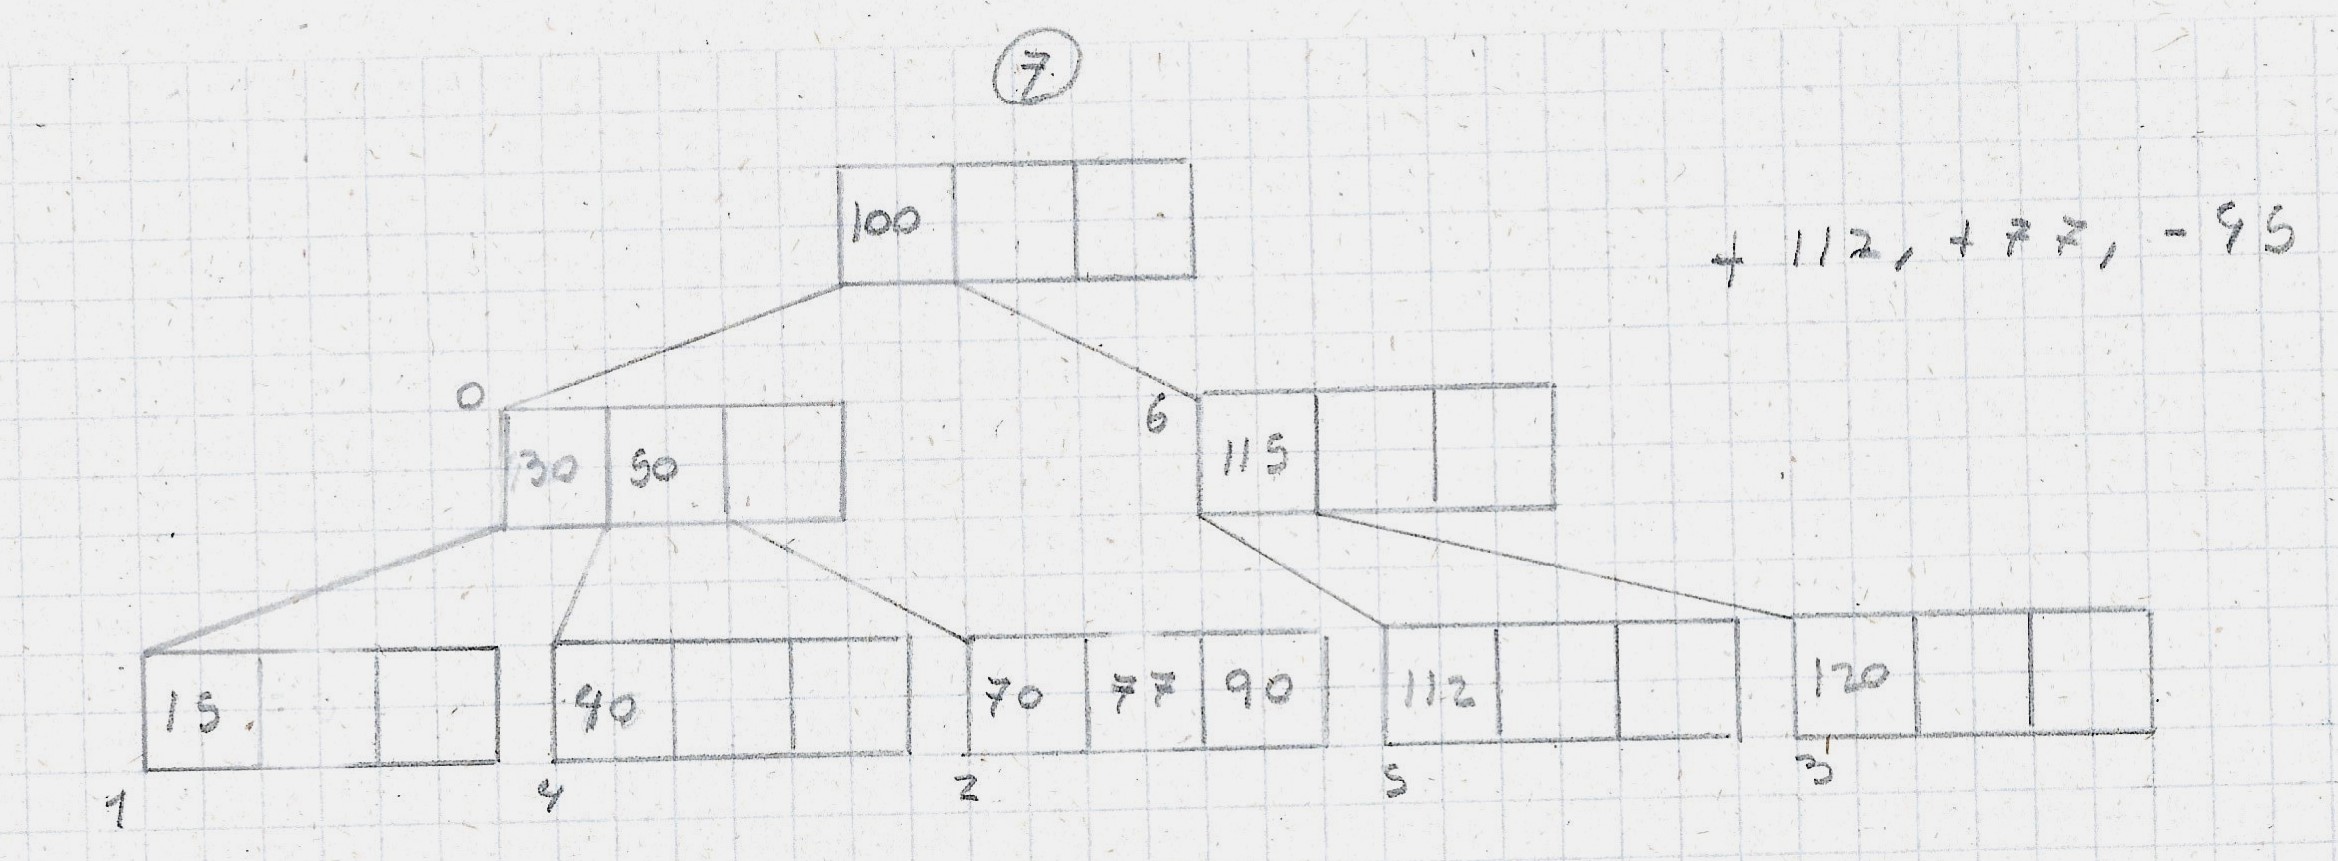 7
100
+ 112, + 77, - 45
0
30 50
6
115
15
40
70 77 90
112
120
1
4
2
5
3